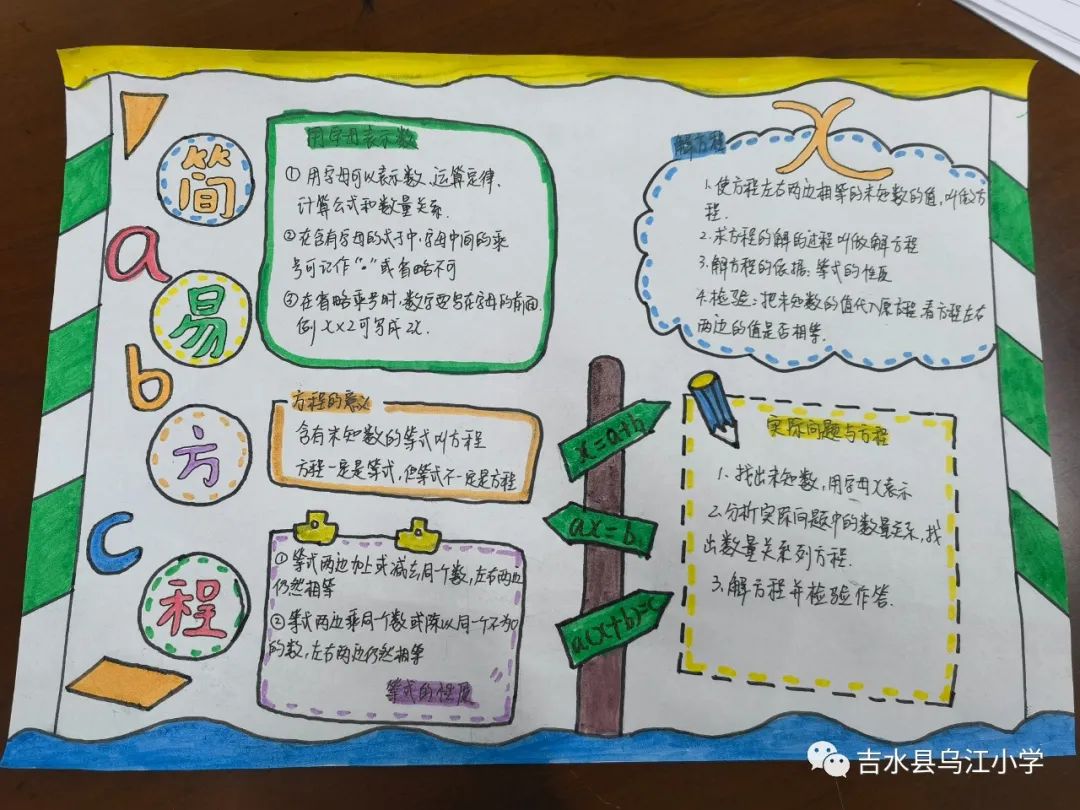 简
易
方
程
a
b
c
用字母表示数
①用字母可以表示数、运算定律、
计算公式和数量关系.
②在含有字母的式子中,字母中间的乘
号可记作“•”或省略不
③在省略乘号时,数字要写在字母的前面.
例 x×2可写成2x.
方程的意义
含有未知数的等式叫方程
方程一定是等式,但等式不一定是方程
①等式两边加上或减去同一个数,左右两边
仍然相等
②等式两边乘同一个数或除以同一个不为0
的数,左右两边仍然相等
等式的性质
x=a+b
ax=b
a(x+b)=c
x
解方程
1.使方程左右两边相等的未知数的值,叫做方
程.
2.求方程的解的过程叫做解方程
3.解方程的依据:等式的性质
4.检验:把未知数的值代入原方程,看方程左右
两边的值是否相等.
实际问题与方程
1、找出未知数,用字母x表示
2.分析实际问题中的数量关系,找
出数量关系列方程.
3.解方程并检验作答.
吉水县乌江小学